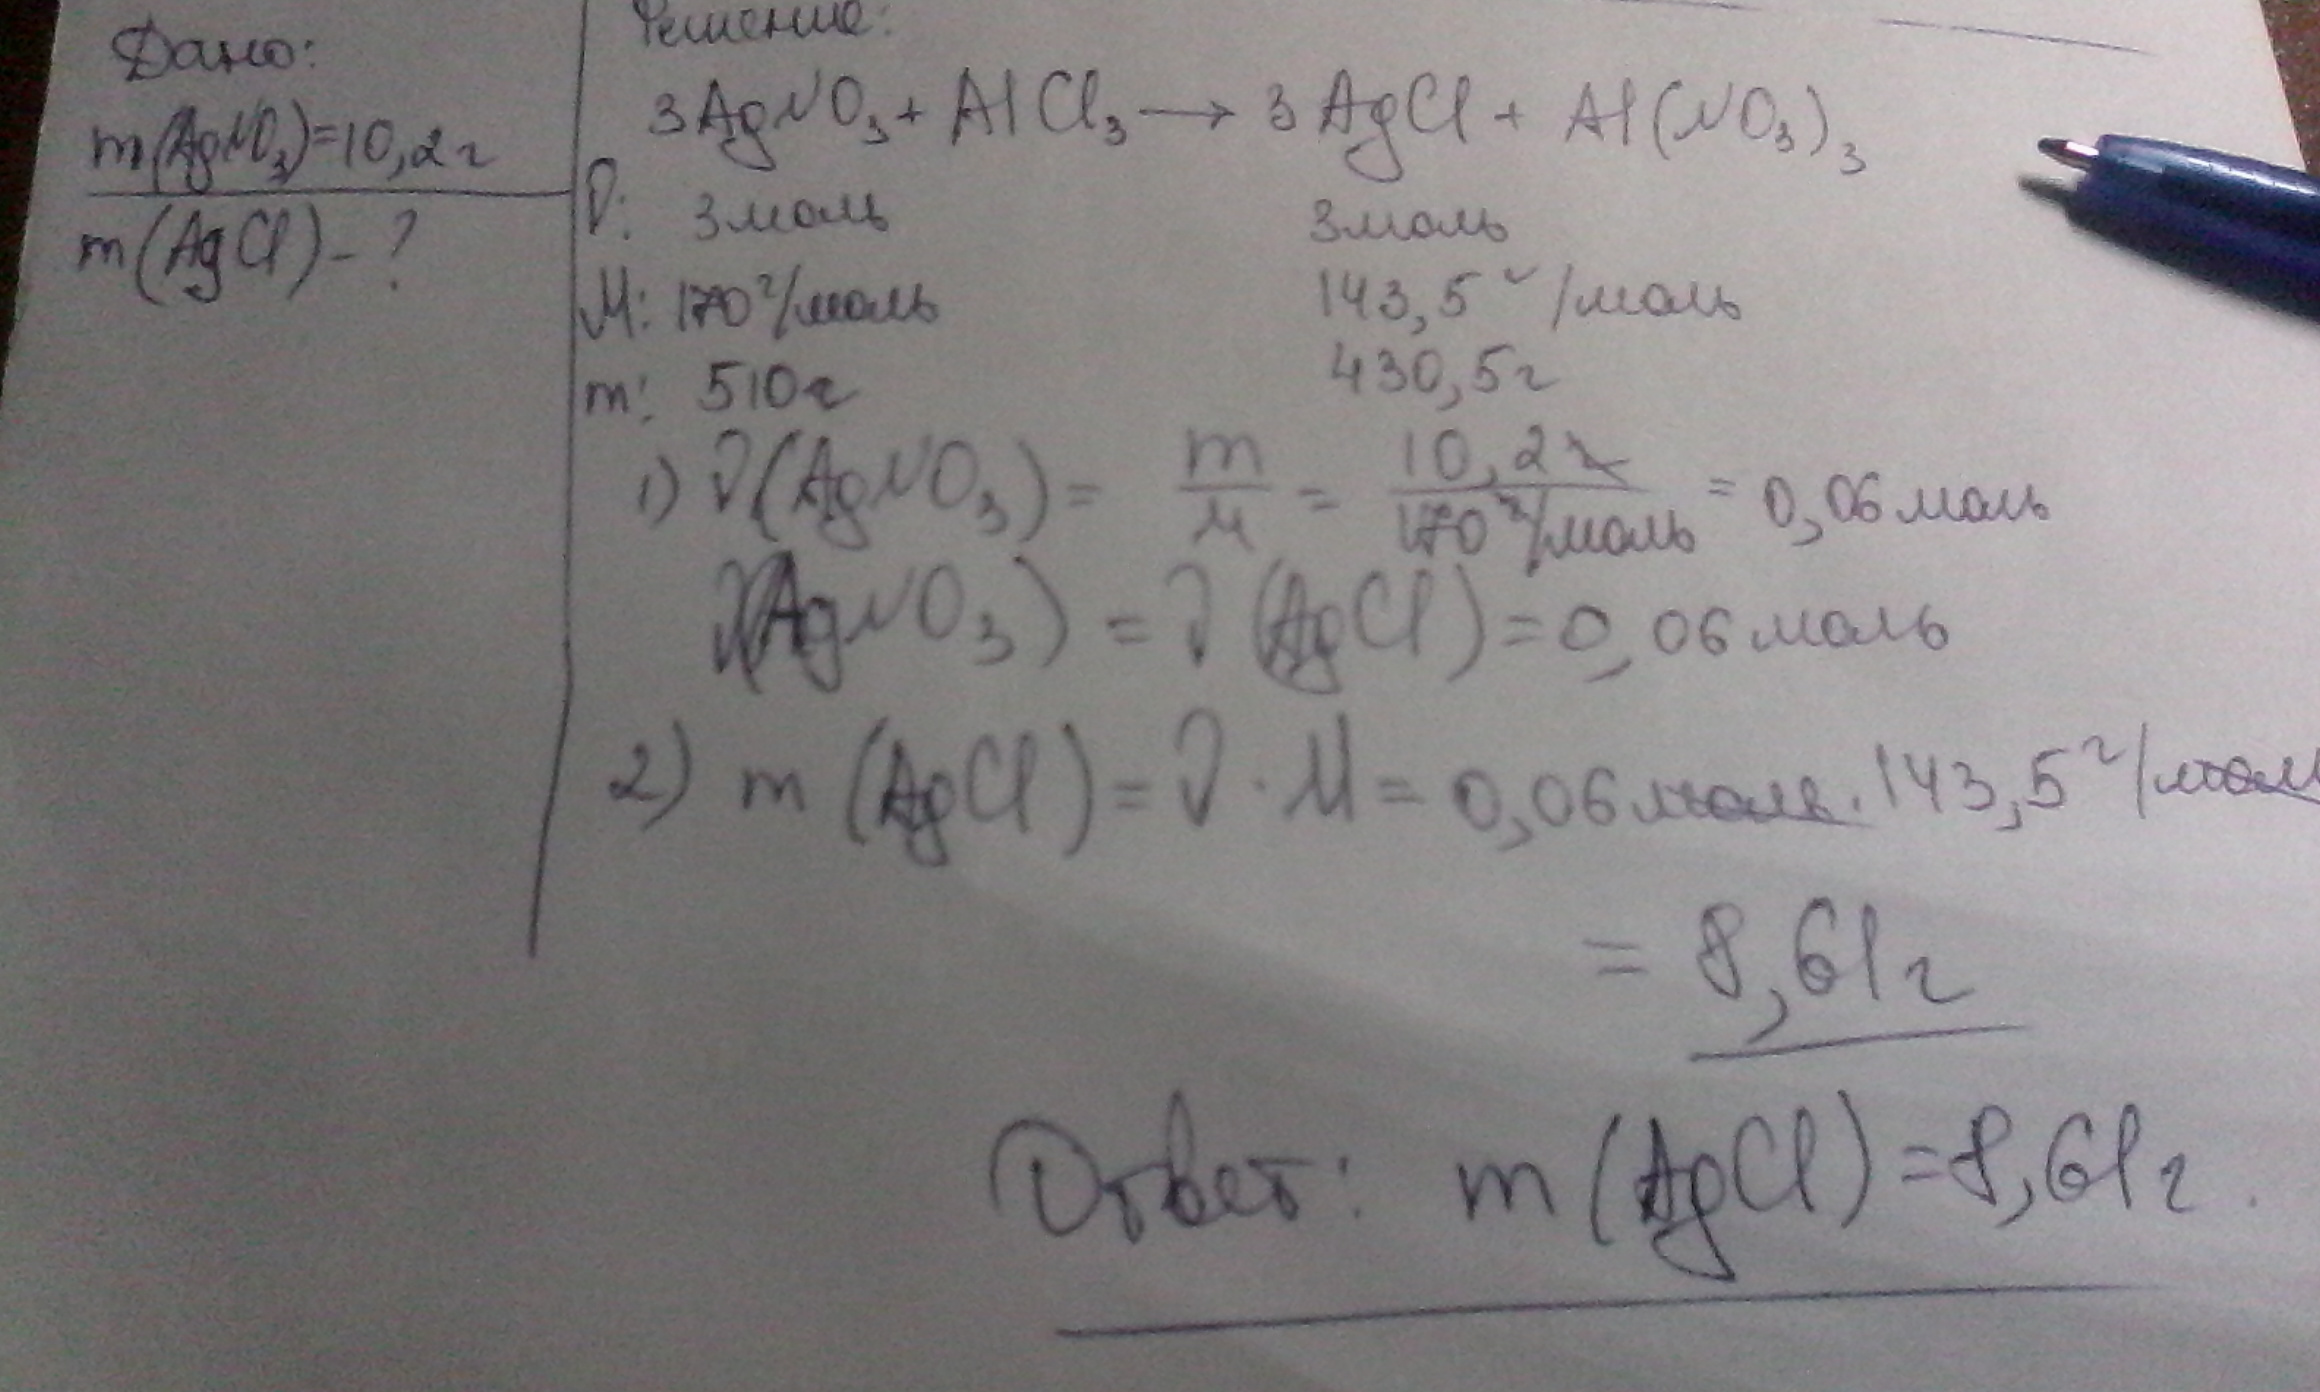 Дано:
m(AgNO₃)=10,2г
m(AgCl)-?
Решение:
3AgNO₃ + AlCl₃ → 3AgCl + Al(NO₃)₃
ν: 3моль 3моль
M: 170 г/моль 143,5 г/моль
m: 510г 430,5г
1) ν(AgNO₃) = m/M = 10,2г/170 г/моль = 0,06 моль
ν(AgNO₃) = ν(AgCl) = 0,06 моль
2) m(AgCl) = ν · M = 0,06 моль · 143,5 г/моль
= 8,61г
Ответ: m(AgCl)=8,61г.